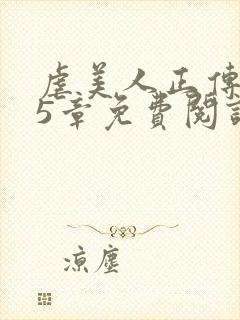 虐美人正傳
5章免費閱讀
涼塵